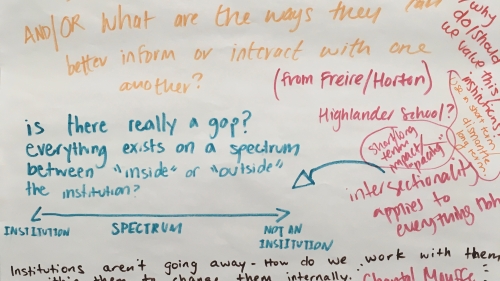 AND/OR what are the ways they can
better inform or interact with one
another?
(from Freire/Horton)
Highlander School?
why
do/should
we value this
institution
use in short term
dismantle
long term
is there really a gap?
everything exists on a spectrum
between "inside" or "outside"
the institution?
short/long
term
impact/
intersectionality
applies to
everything
INSTITUTION
SPECTRUM
NOT AN
INSTITUTION
Institutions aren't going away - How do we work with them
them to change them internally.
Chantal Mouffe